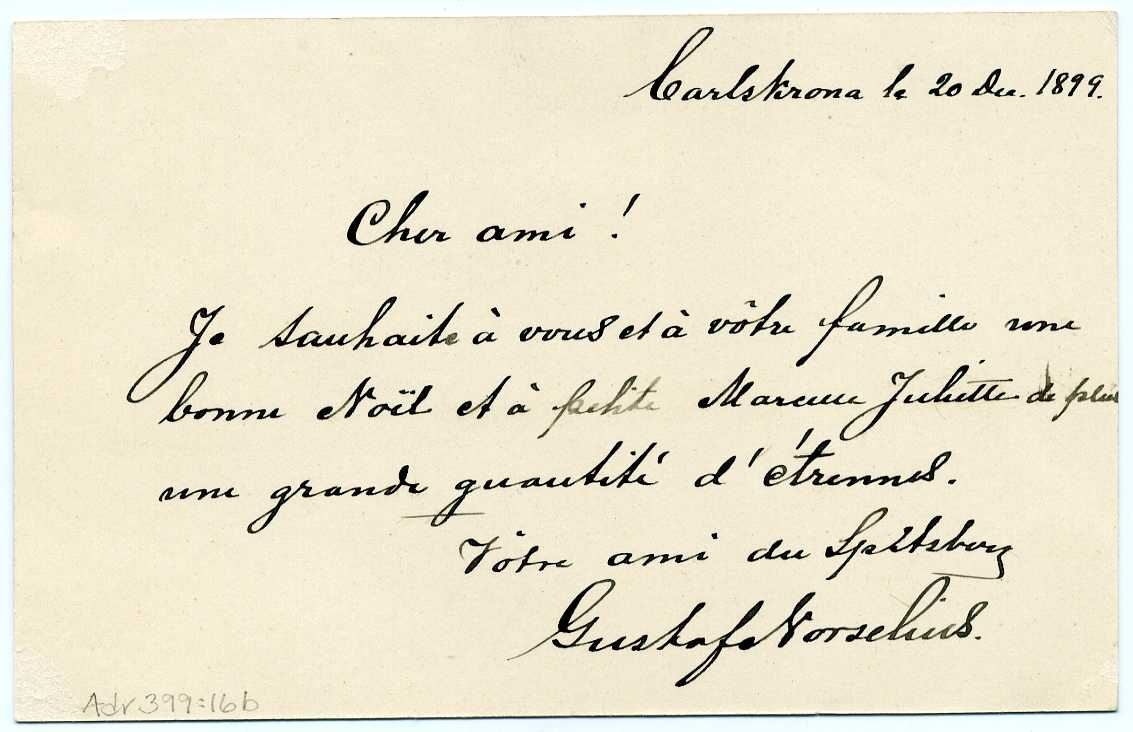 Carlskrona le 20 Dec. 1899.
Cher ami !
Je souhaite à vous et à vôtre famille une
bonne Noël et à petite Juliette de plus
une grande quantité d'étrennes.
Vôtre ami du Spitsberg
Gustaf Norselius.
Adr 399:16b